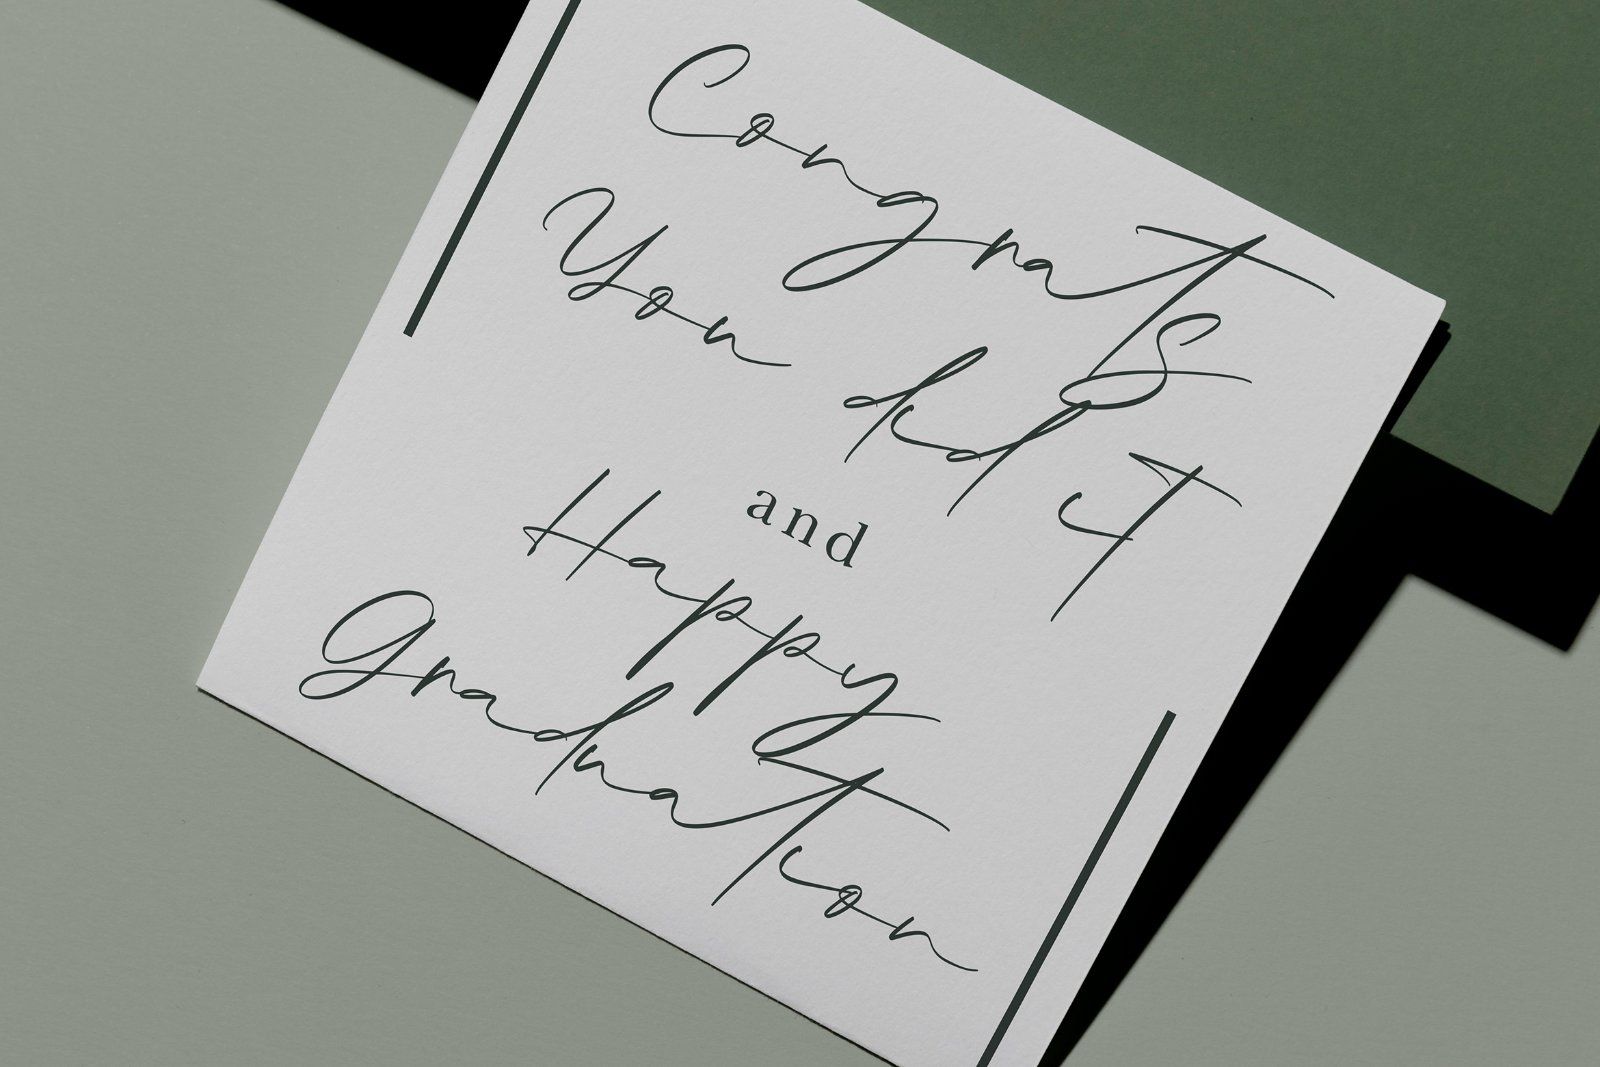 Congrats
You did it
and
Happy
Graduation